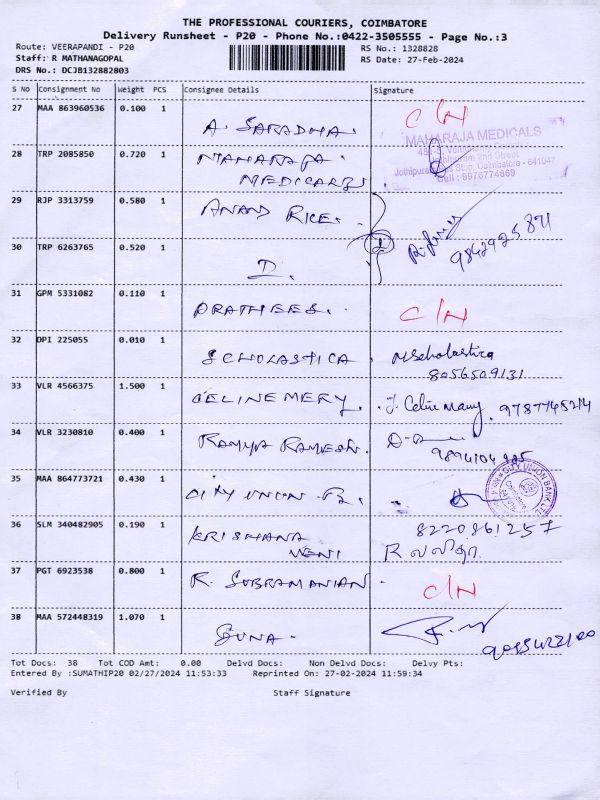 THE PROFESSIONAL COURIERS, COIMBATORE
Delivery Runsheet - P20 - Phone No.:0422-3505555 - Page No.:3
Route: VEERAPANDI - P20 RS No.: 1328828
Staff: R MATHANAGOPAL RS Date: 27-Feb-2024
DRS No.: DCJB132882803
S No Consignment No Weight PCS Consignee Details Signature
27 MAA 863960536 0.100 1 A. SARADHA. C/N
28 TRP 2085850 0.720 1 MAHARAJA MEDICALS
MAHARAJA MEDICALS
Jothipuram Coimbatore - 641047
Cell : 9976774669
29 RJP 3313759 0.580 1 ANAND RICE.
9842925871
30 TRP 6263765 0.520 1 D.
31 GPM 5331082 0.110 1 PRATHEES. C/N
32 DPI 225055 0.010 1 SCHOLASTICA. M Scholastica
8056509131
33 VLR 4566375 1.500 1 CELINE MERY. J. Celine Mary. 9787745214
34 VLR 3230810 0.400 1 RAMYA RAMESH.
35 MAA 864773721 0.430 1 CITY UNION
CITY UNION BANK LTD
36 SLM 340482905 0.190 1 KRISHANA VENI 8220861257
R லலிதா
37 PGT 6923538 0.800 1 R. SUBRAMANIAN. C/N
38 MAA 572448319 1.070 1 GUNA.
Tot Docs: 38 Tot COD Amt: 0.00 Delvd Docs: Non Delvd Docs: Delvy Pts:
Entered By :SUMATHIP20 02/27/2024 11:53:33 Reprinted On: 27-02-2024 11:59:34
Verified By Staff Signature